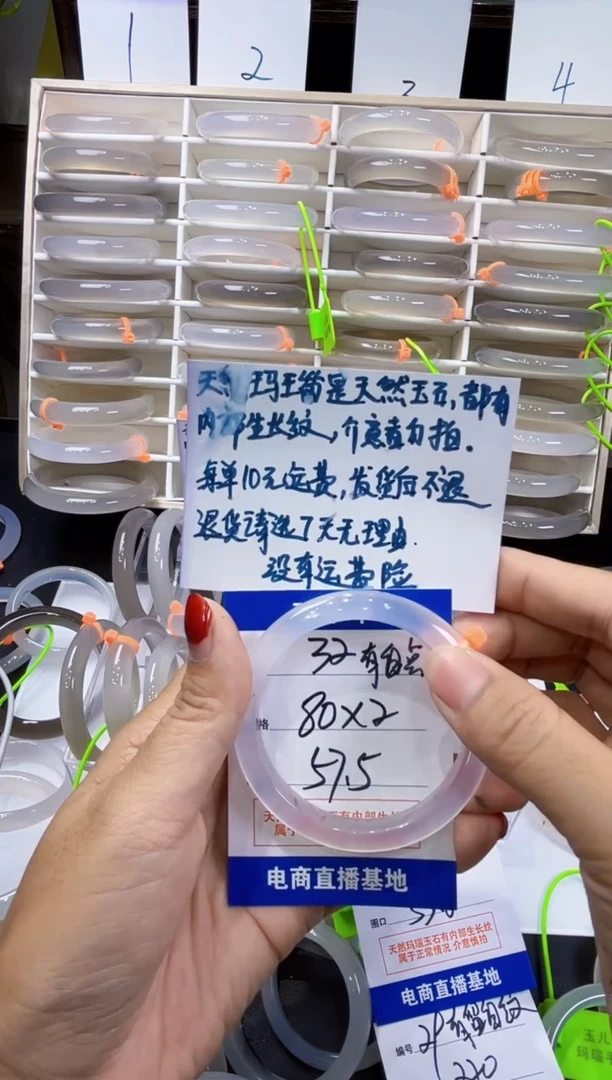 1
2
3
4
天 玛 是天然玉石,都有
内部生长纹,介意者勿拍.
每单10元运费,发货后不退
退货请选7天无理由.
没有运费险
32 有
80×2
57.5
有内部生长纹
属于
电商直播基地
圈口
天然玛瑙玉石有内部生长纹
属于正常情况 介意慎拍
电商直播基地
编号
220
玉儿